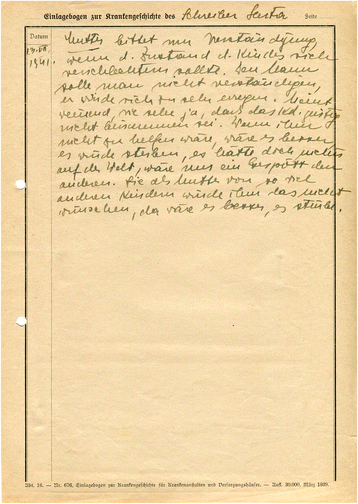 Einlagebogen zur Krankengeschichte des Schreiber Seite
Datum
1941.
Mutter bittet um Verständigung,
wenn d. Zustand d. Kindes sich
verschlechtern sollte. Den Mann
solle man nicht verständigen,
er würde sich zu sehr erregen. Meint
weinend, sie sehe ja, dass das Kd. geistig
nicht beisammen sei. Wenn ihm
nicht zu helfen wäre, wäre es besser
es würde sterben, es hätte doch nichts
auf der Welt, wäre nur ein Gespött der
anderen. Sie als Mutter von so viel
anderen Kindern würde ihm das nicht
wünschen, da wäre es besser, es stürbe.
Bbt. 16. — Nr. 676, Einlagebogen zur Krankengeschichte für Krankenanstalten und Versorgungshäuser. — Aufl. 30.000, März 1939.